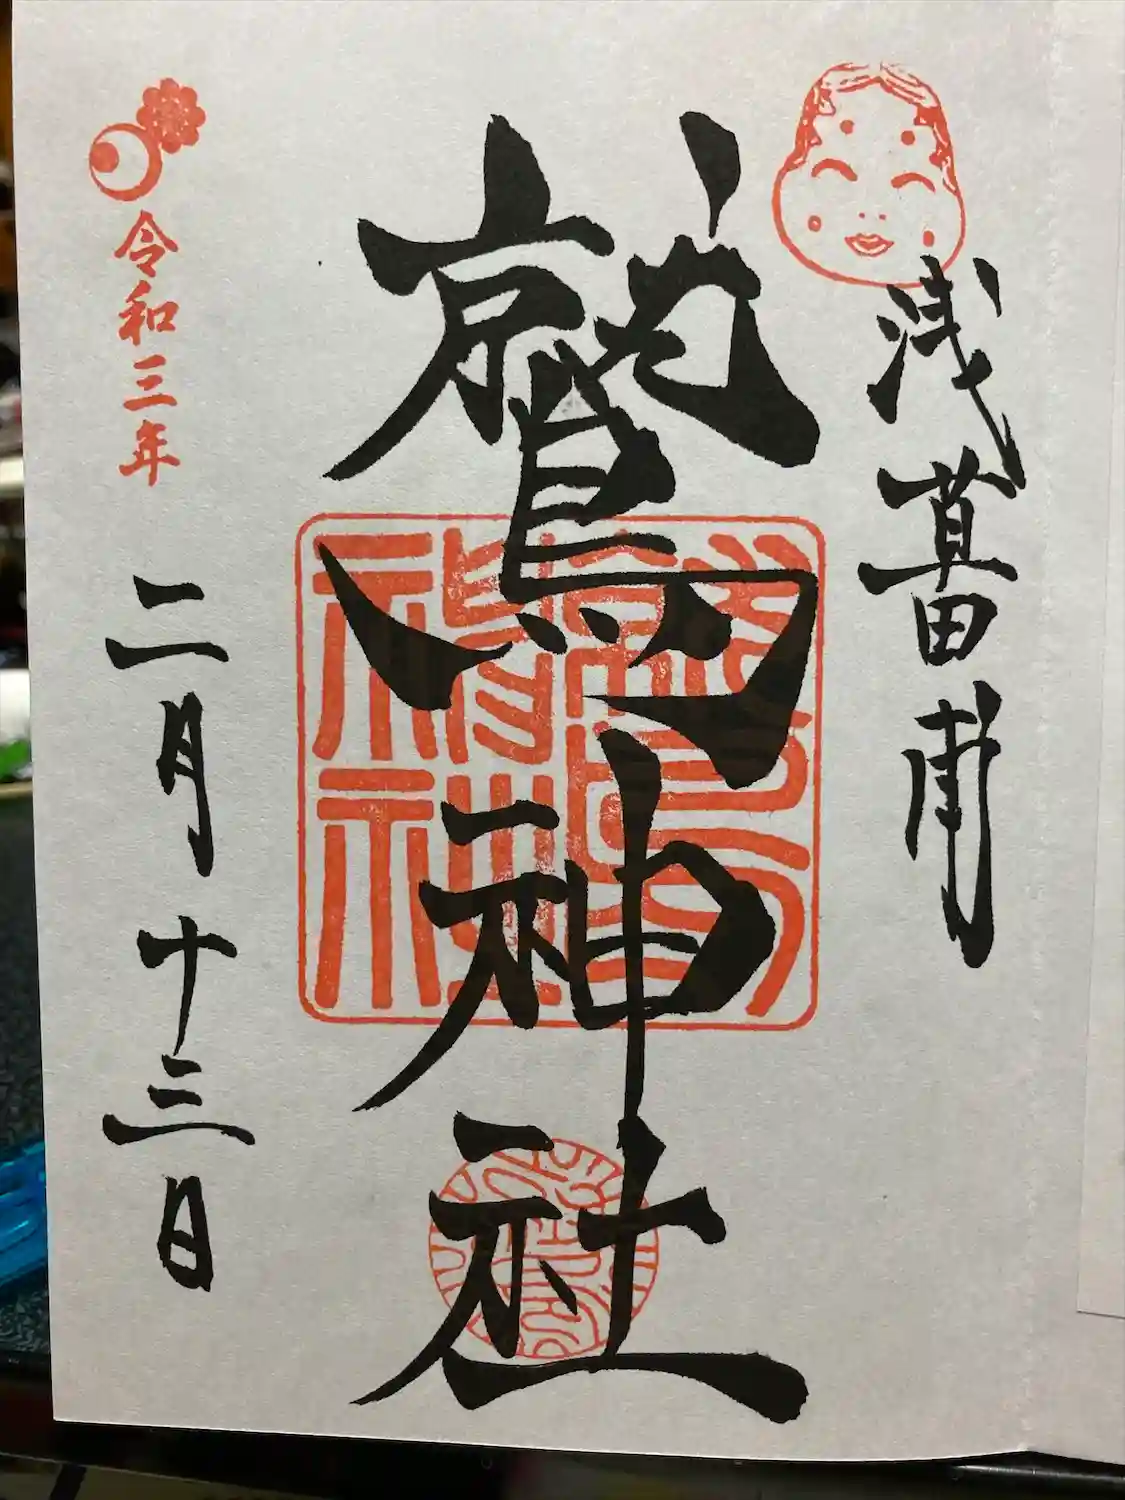 浅草田甫
鷲神社
鷲神社
令和三年
二月十三日